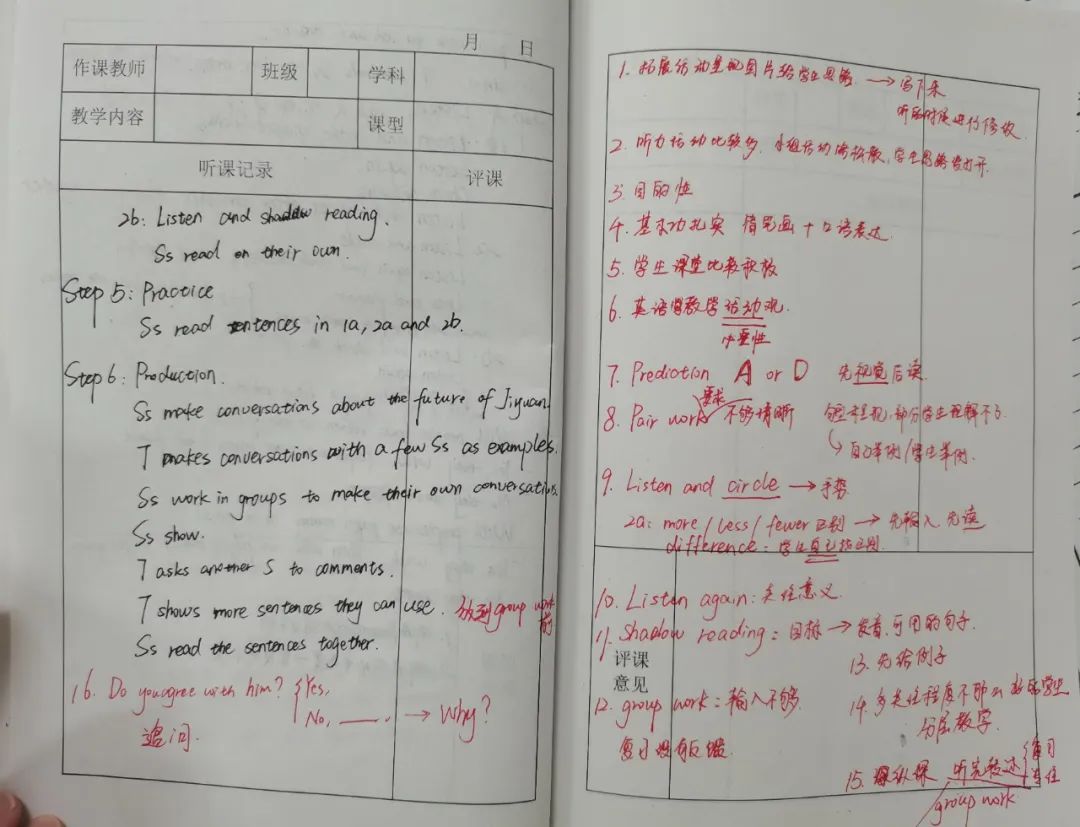 月 日
作课教师 班级 学科
教学内容 课型
听课记录 评课
2b: Listen and shadow reading.
Ss read on their own.
Step 5: Practice
Ss read sentences in 1a, 2a and 2b.
Step 6: Production.
Ss make conversations about the future of Jiyuan.
T makes conversations with a few Ss as examples.
Ss work in groups to make their own conversations.
Ss show.
T asks another S to comments.
T shows more sentences they can use. 放到group work前
Ss read the sentences together.
16. Do you agree with him? Yes,
No, ____. → Why?
追问.
1. 拓展活动呈现图片给学生思路. → 写下来
听的时候进行修改.
2. 听力活动比较多, 小组活动, 学生思路打开.
3. 目的性
4. 基本功扎实 简笔画 + 口语表达.
5. 学生课堂比较积极
6. 英语学教学活动观.
重性
7. Prediction A or D 先视觉后读.
8. Pair work 要求 不够清晰 呈现, 部分学生理解不了.
↳ 自己举例/学生举例.
9. Listen and circle → 手势
2a: more / less / fewer 区别 → 先输入 先读
difference: 学生自己找区别.
评课意见
10. Listen again: 关注意义.
11. Shadow reading: 目标 → 发音, 可用的句子.
13. 先给例子
12. group work: 输入不够. 14. 多关注程度不那么好的学生
复习没有反馈. 分层教学.
15. 听完转述 复习
关注
group work